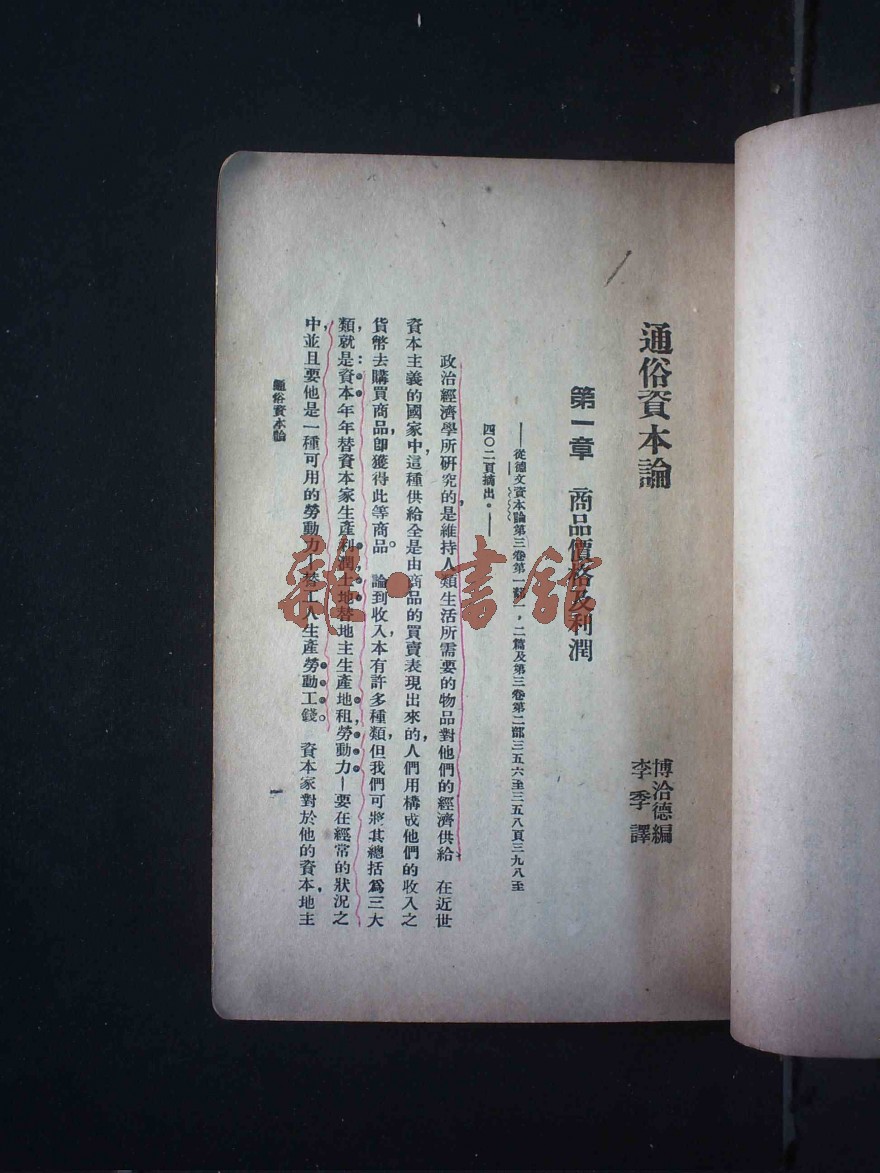 通俗資本論
博洽德編
李季譯
第一章 商品價格及利潤
——從德文資本論第三卷第一部一，二篇及第三卷第二部三五六至三五八頁三九八至
四〇二頁摘出。——
政治經濟學所研究的，是維持人類生活所需要的物品對他們的經濟供給。在近世
資本主義的國家中，這種供給全是由商品的買賣表現出來的，人們用構成他們的收入之
貨幣去購買商品，即獲得此等商品。論到收入，本有許多種類，但我們可將其總括爲三大
類，就是：資本年年替資本家生產利潤，土地替地主生產地租，勞動力—要在經常的狀況之
中，並且要他是一種可用的勞動力—替工人生產勞動工錢。資本家對於他的資本，地主
通俗資本論
一
雜·書舘